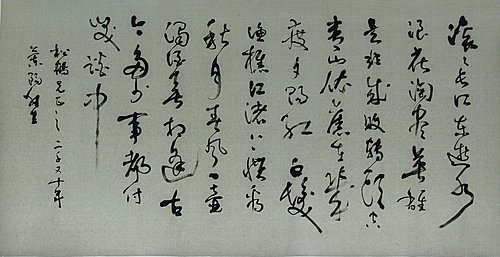 滚〻长江东逝水
浪花淘尽英雄
是非成败转头空
青山依舊在几
度夕阳红白发
渔樵江渚上惯看
秋月春风一壶
浊酒喜相逢古
今多少事都付
笑谈中
兄正之二千又十年